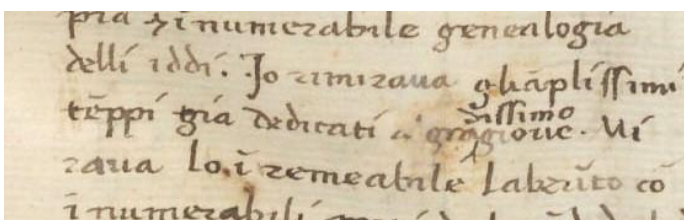 pia & inumerabile genealogia
delli iddi. Jo rimiraua gli āplissimi
tēppi gia dedicati a grādissimo gioue. Mi
raua lo īremeabile laberīto cō
inumerabili